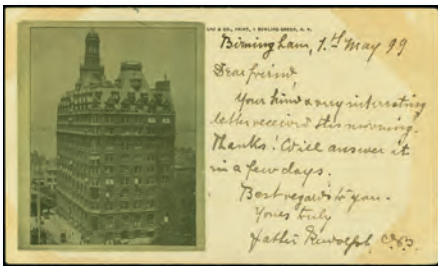 & CO., PRINT, 1 BOWLING GREEN, N. Y.
Birmingham, 1.st May 99
Dear friend
Your kind & very interesting
letter received this morning.
Thanks! Will answer it
in a few days.
Best regards to you.
Yours truly
Father Rudolph